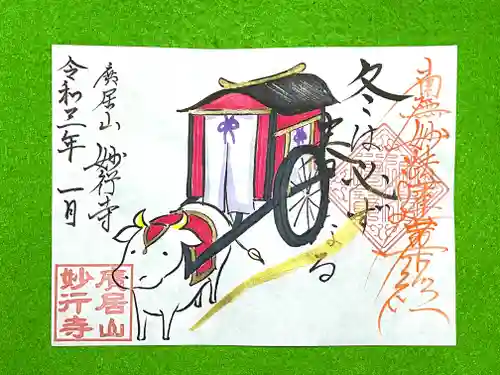 南無妙法蓮華経
冬は必ず
春となる
廣居山 妙行寺
令和三年 一月
廣居山
妙行寺